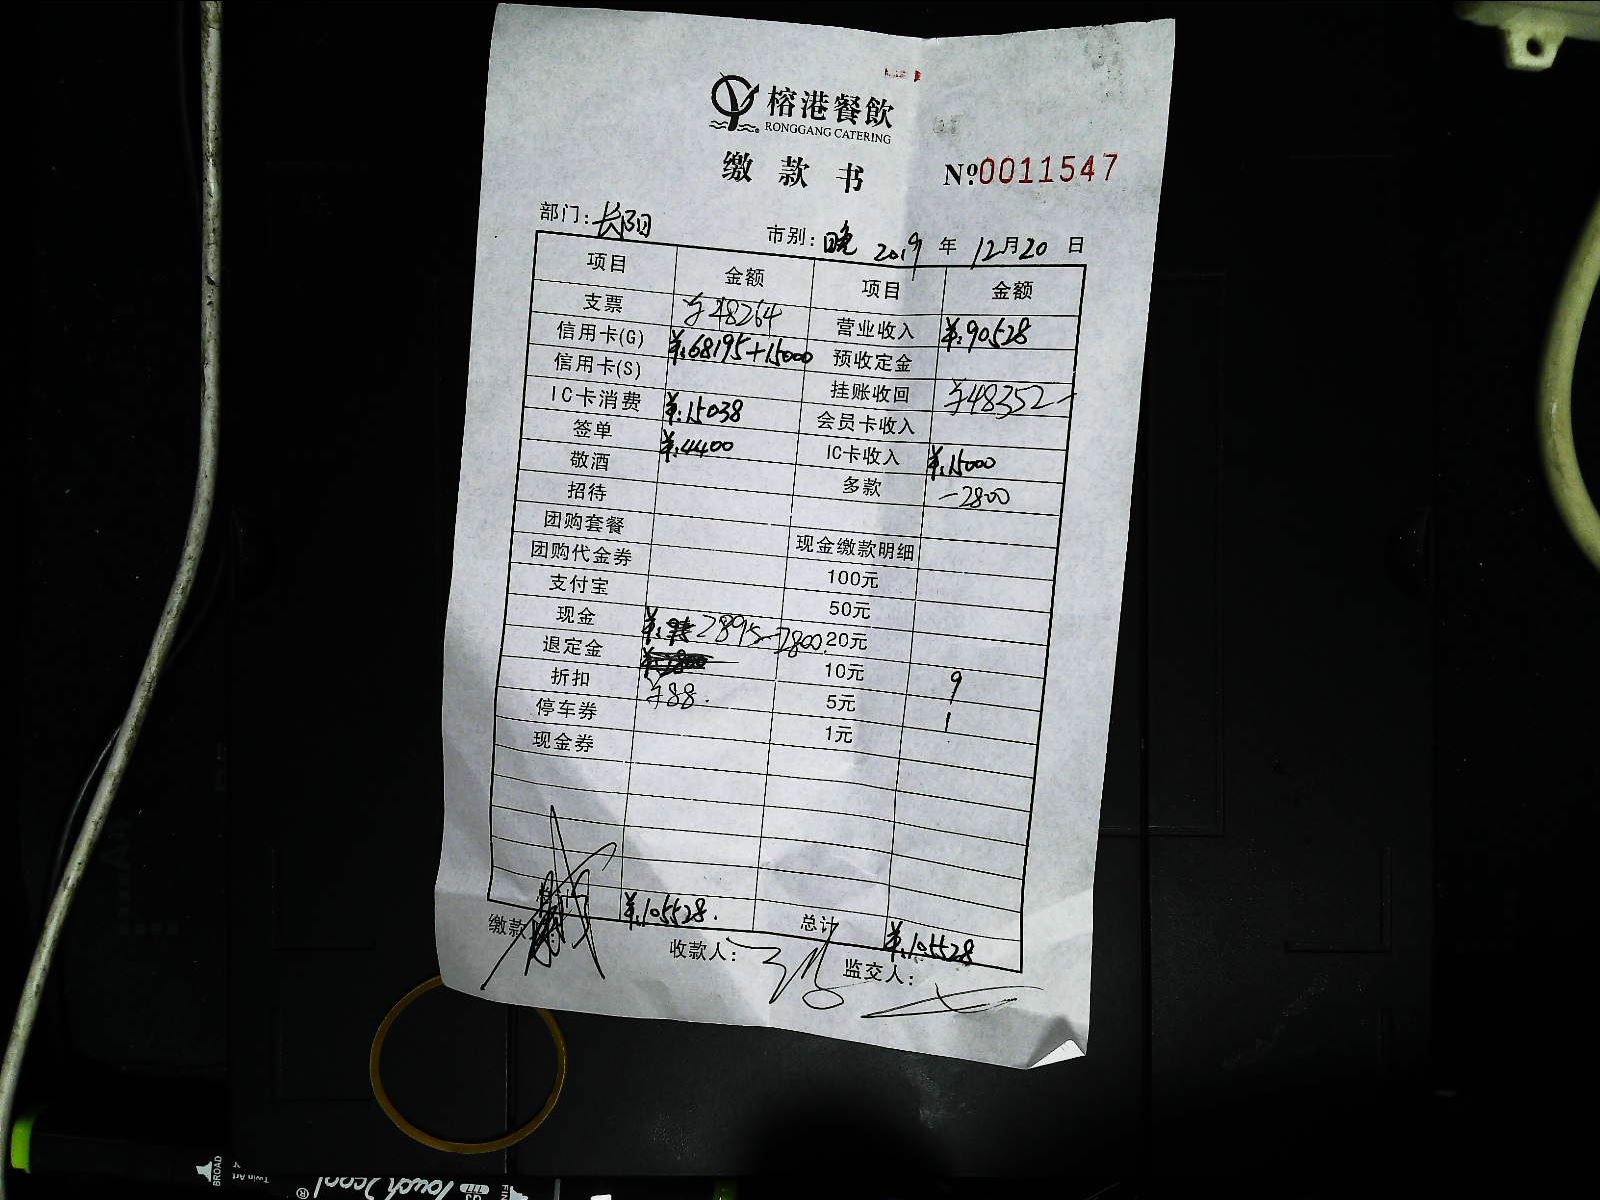 榕港餐飲
RONGGANG CATERING
缴款书
No.0011547
部门: 长阳 市别: 晚 2019 年 12月20 日
项目 金额 项目 金额
支票 ¥48264 营业收入 ¥:90528
信用卡(G) ¥:68195+15000 预收定金
信用卡(S) 挂账收回 ¥48352-
IC卡消费 ¥:15038 会员卡收入
签单 ¥:4400 IC卡收入 ¥:15000
敬酒 多款 -2800
招待
团购套餐 现金缴款明细
团购代金券 100元
支付宝 50元
现金 ¥: 2895-2800 20元
退定金 10元 9
折扣 ¥88. 5元 1
停车券 1元
现金券
¥:105528. 总计 ¥:105528
缴款 收款人: 监交人:
BROAD
Twin Art
Touch 2cool
®